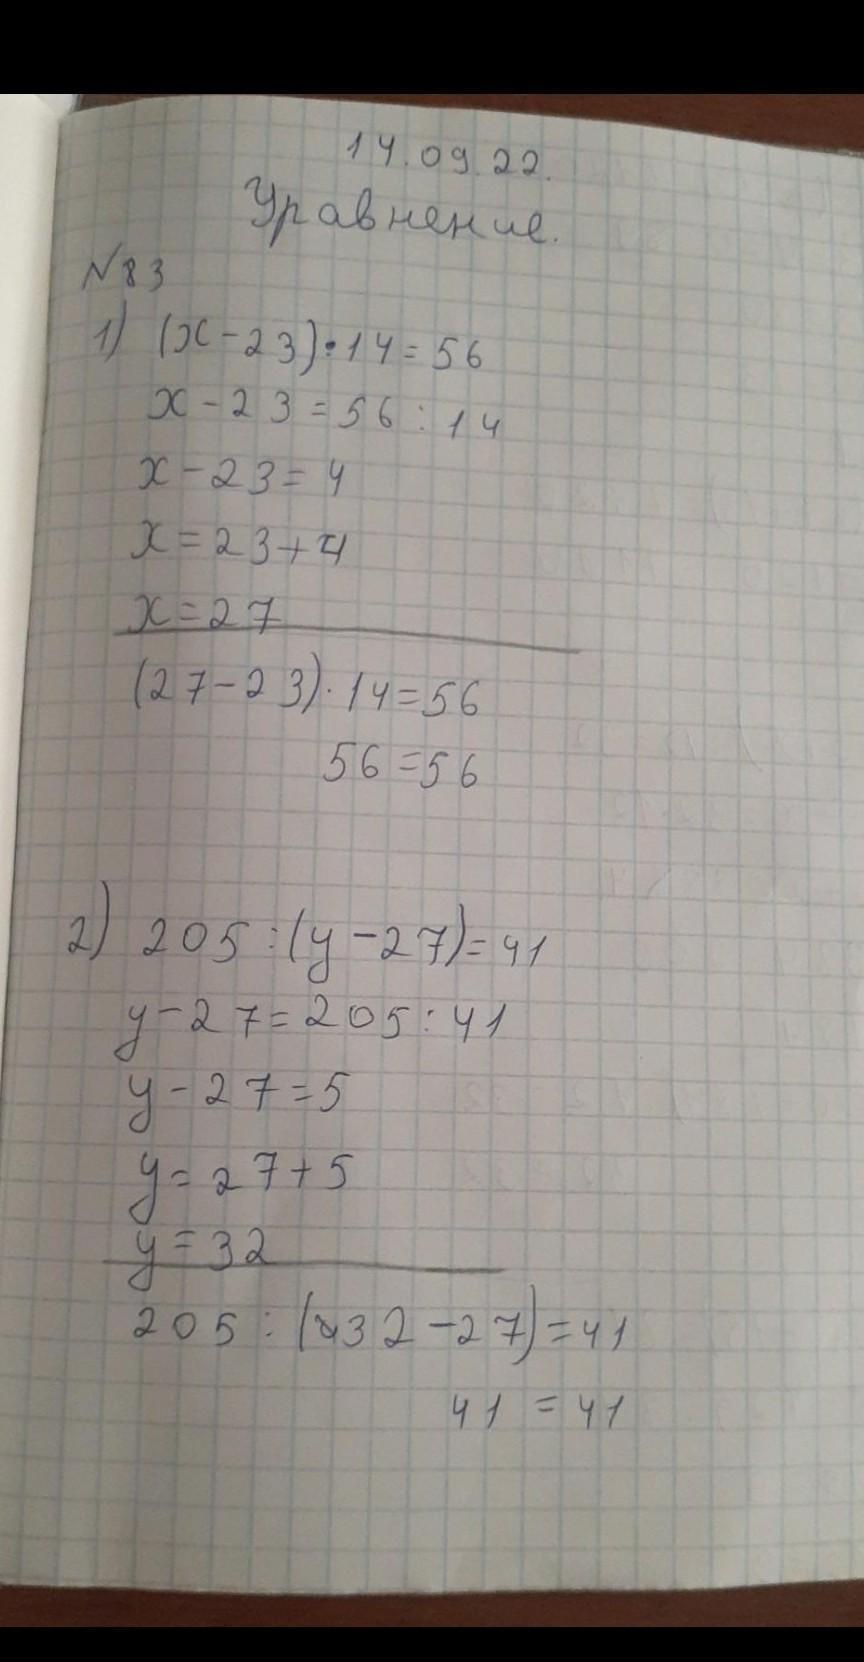 14.09.22.
Уравнение.
№83
1) (x-23)•14=56
x-23=56:14
x-23=4
x=23+4
x=27
(27-23)·14=56
56=56
2) 205:(y-27)=41
y-27=205:41
y-27=5
y=27+5
y=32
205:(32-27)=41
41=41